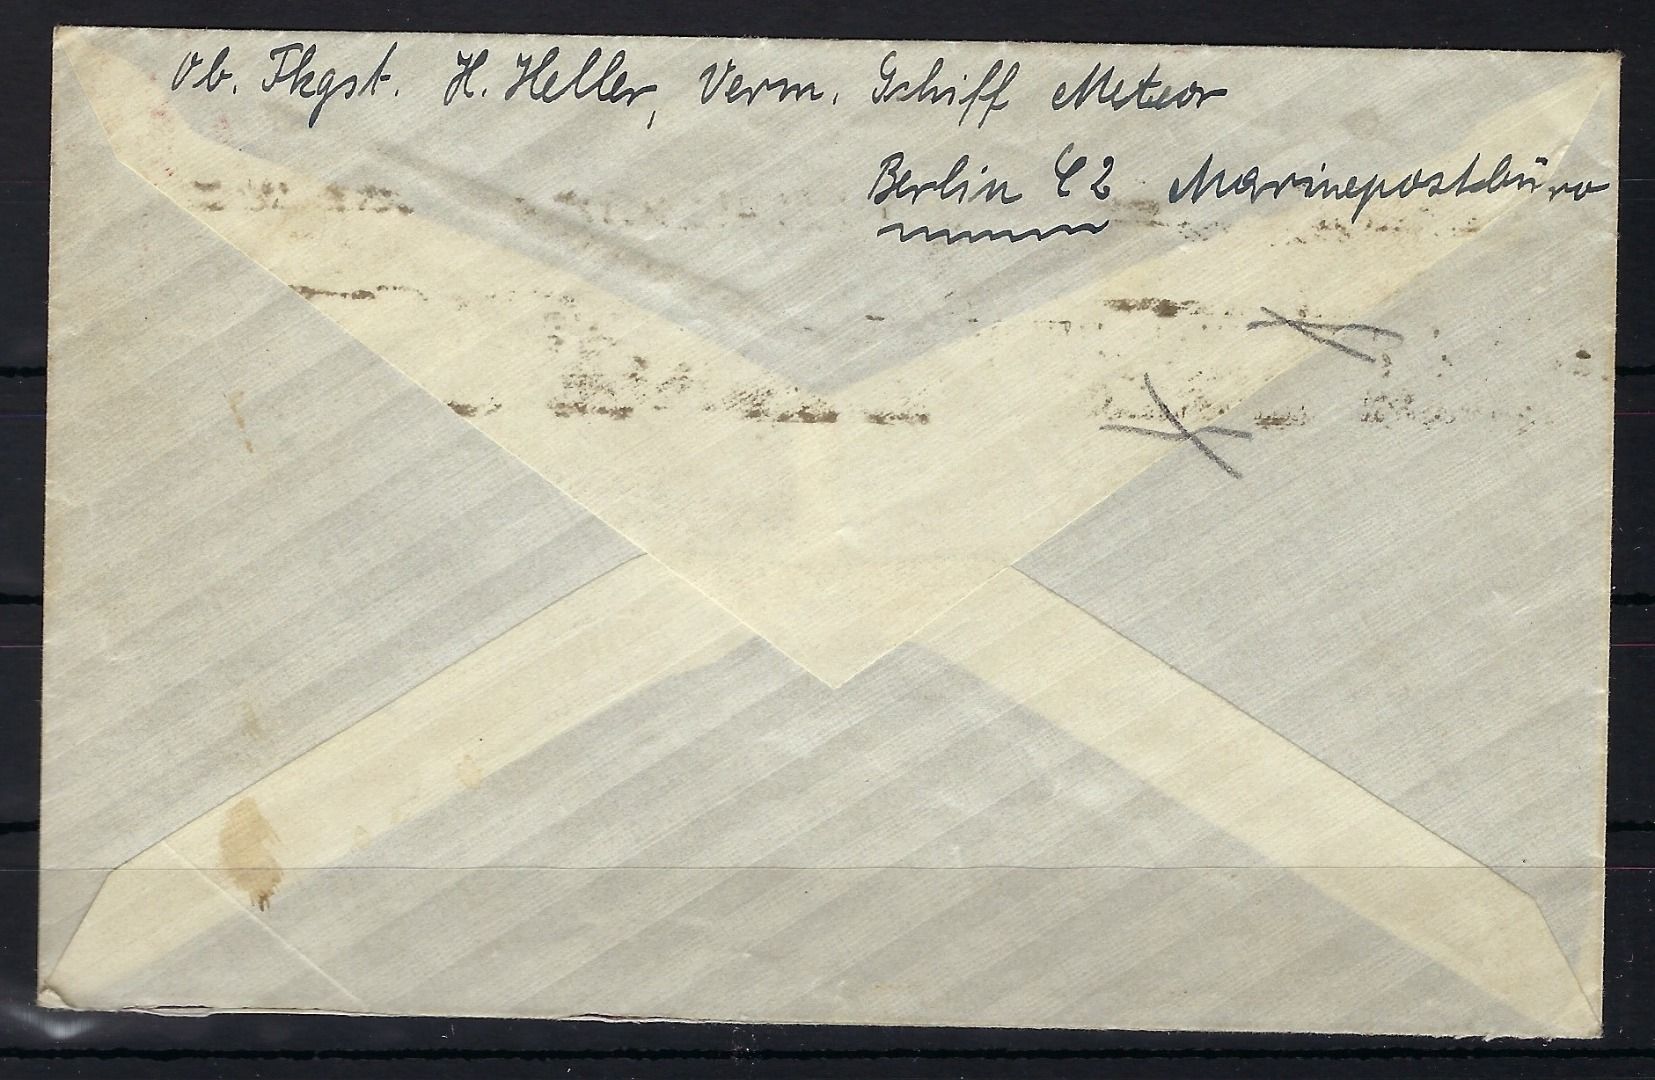 Ob. Fkgst. H. Heller, Verm. Schiff Meteor
Berlin C2 Marinepostbüro